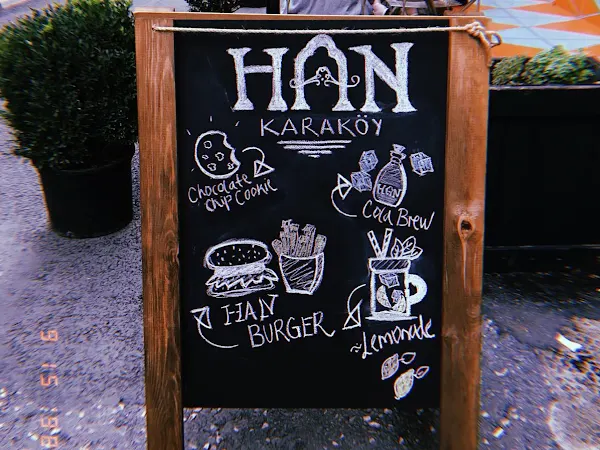 HAN
KARAKÖY
Chocolate
Chip Cookie
HAN
Cold Brew
HAN
BURGER
~Lemonade
9 15 '98